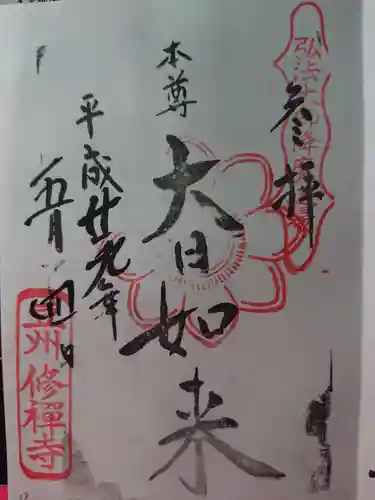 参拝
弘法大師
本尊
大日如来
平成廿九年
五月四日
豆州修禅寺